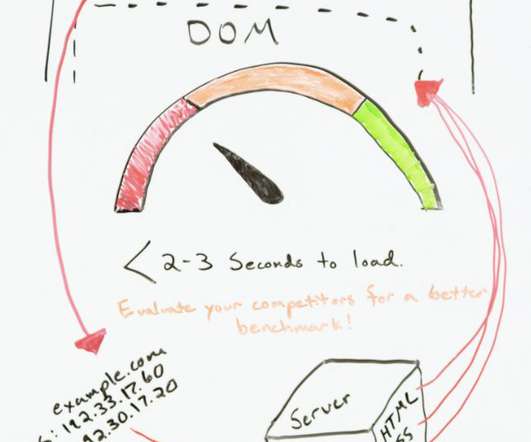 DOM
< 2-3 Seconds to load.
Evaluate your competitors for a better
benchmark!
example.com
: 192.33.17.60
92.30.17.20
Server
HTML
SS